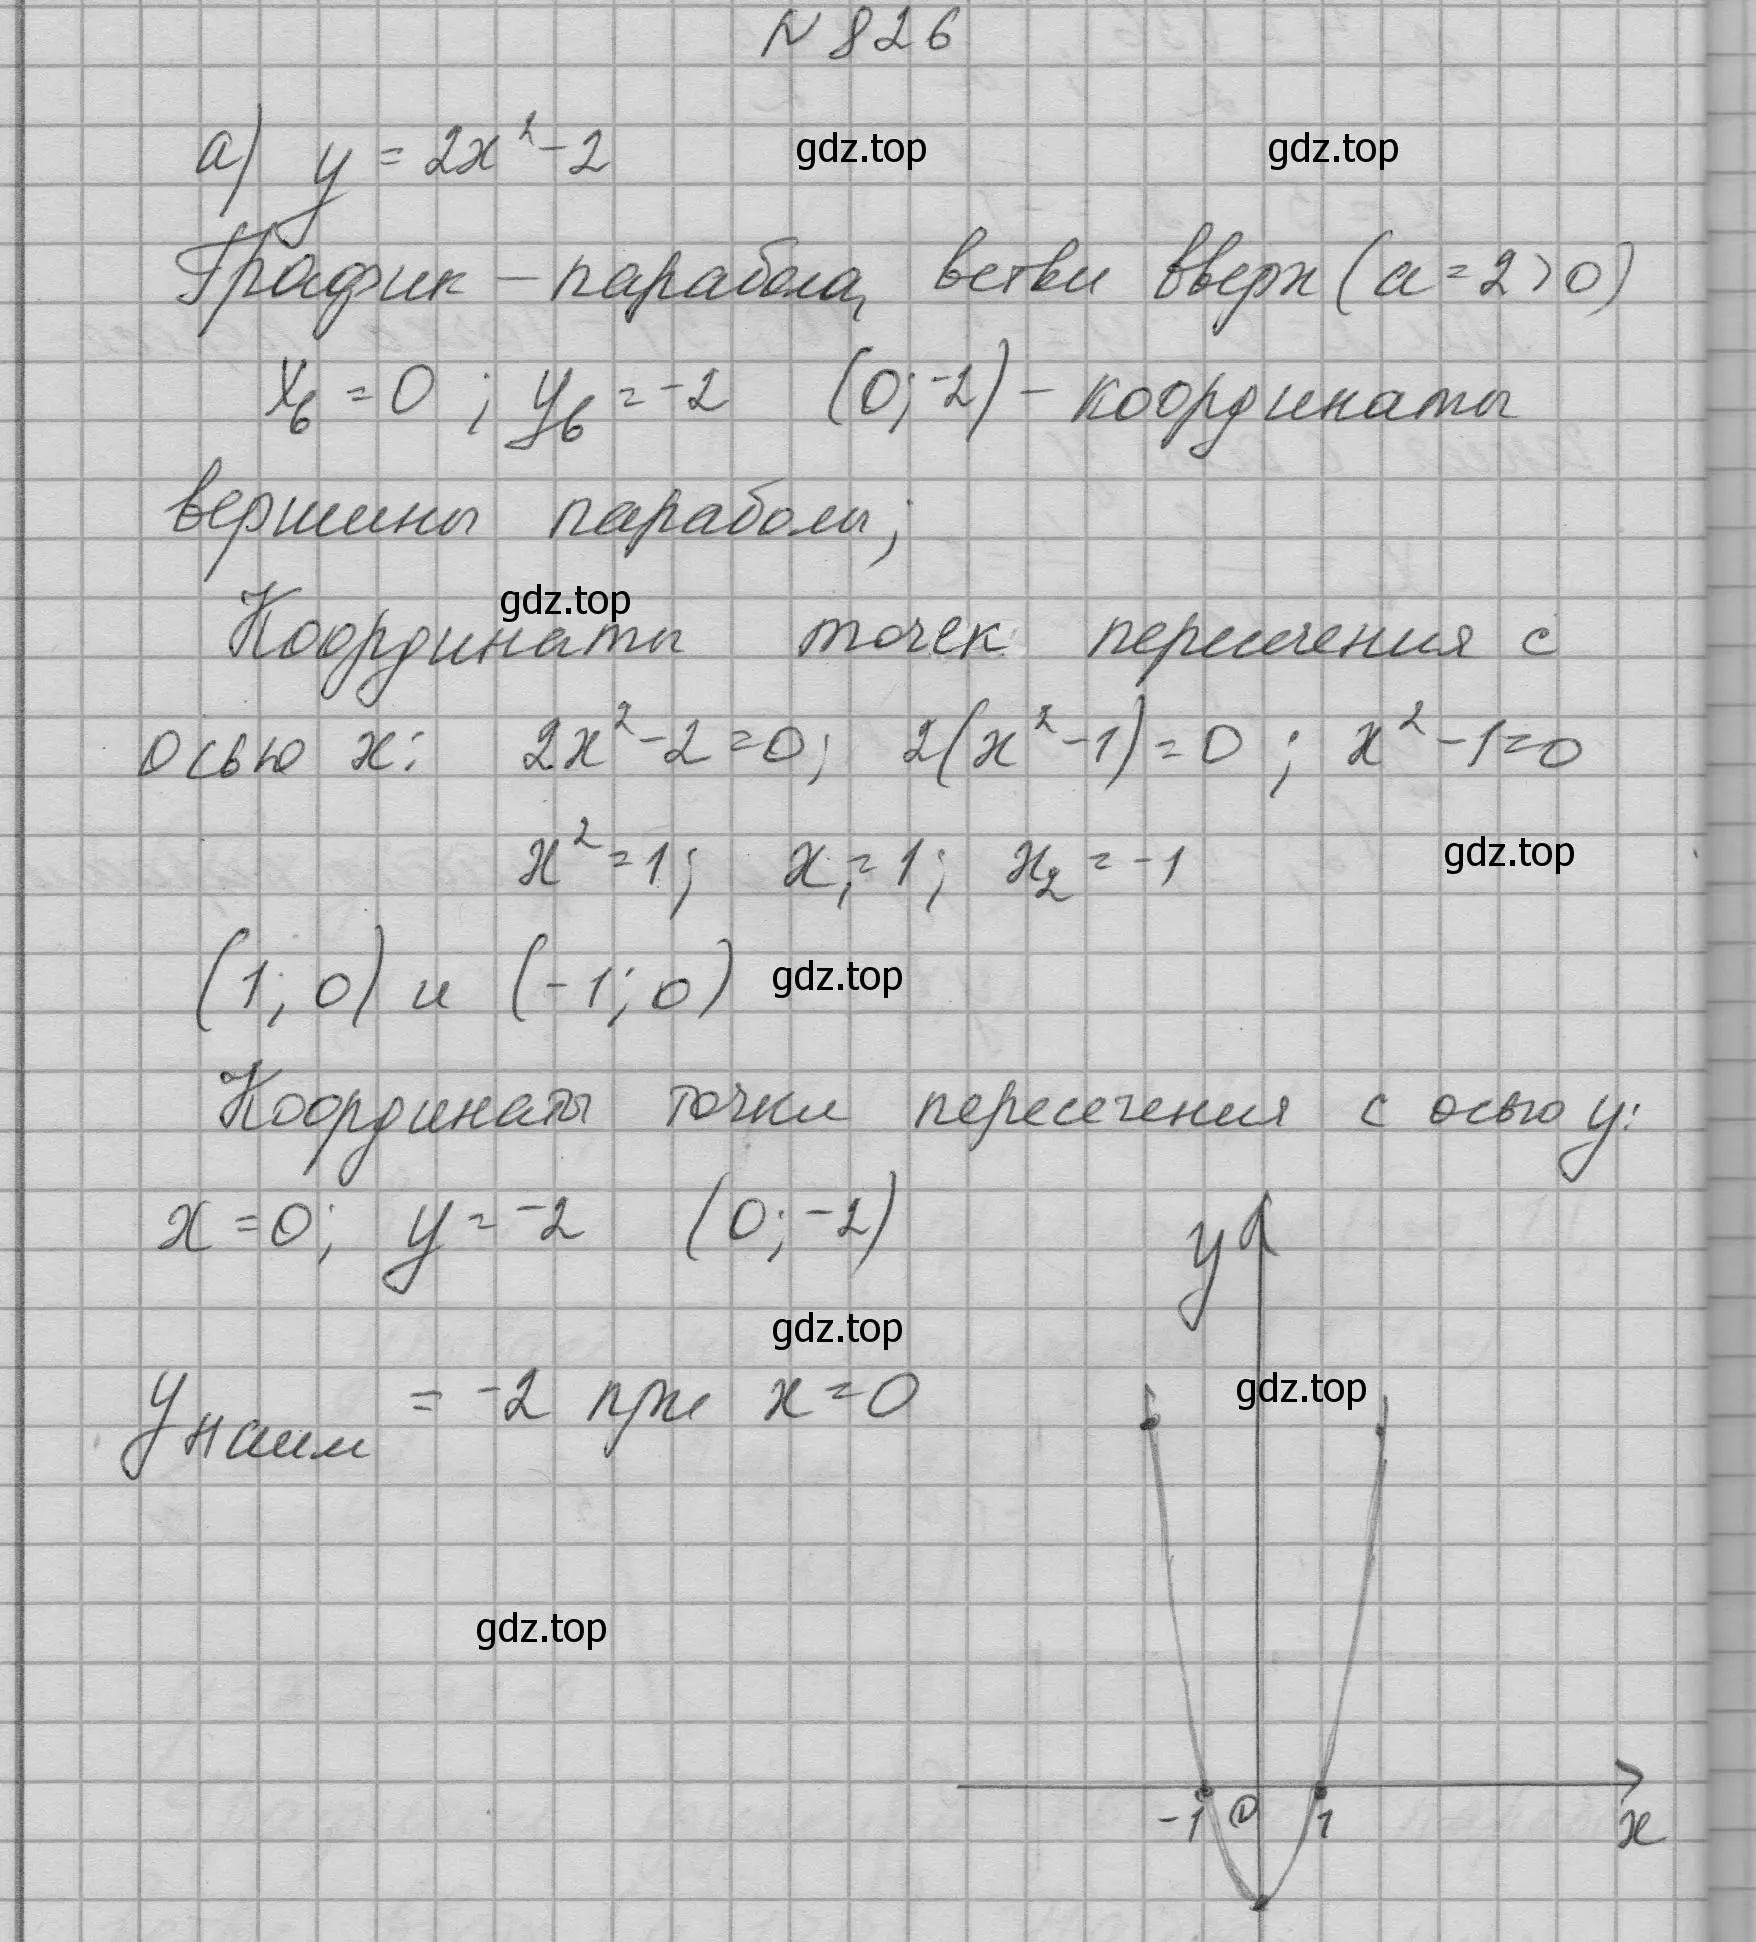 № 826
а) y = 2x² - 2 gdz.top gdz.top
График – парабола, ветви вверх (a = 2 > 0)
x_в = 0 ; y_в = -2 (0; -2) – координаты
вершины параболы;
gdz.top
Координаты точек пересечения с
осью x: 2x² - 2 = 0; 2(x² - 1) = 0 ; x² - 1 = 0
x² = 1; x₁ = 1; x₂ = -1 gdz.top
(1; 0) и (-1; 0) gdz.top
Координаты точки пересечения с осью y:
x = 0; y = -2 (0; -2)
y
gdz.top
y_наим = -2 при x = 0 gdz.top
gdz.top
-1 0 1 x